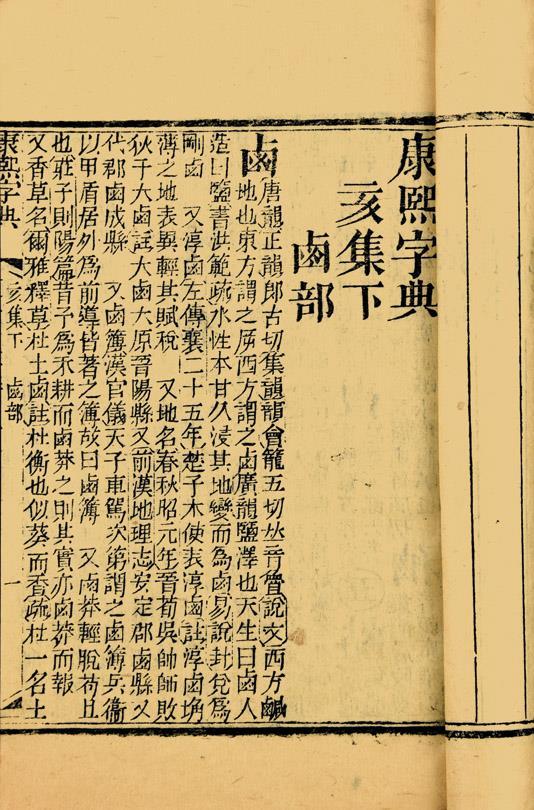 康熙字典
亥集下
鹵部
鹵
唐韻正韻郎古切集韻韻會籠五切𠀤音魯說文西方鹹
地也東方謂之㡿西方謂之鹵廣韻鹽澤也天生曰鹵人
造曰鹽書洪範疏水性本甘久浸其地變而為鹵易說卦兌為
剛鹵 又淳鹵左傳襄二十五年楚子木使表淳鹵註淳鹵埆
薄之地表異輕其賦稅 又地名春秋昭元年晉荀吳帥師敗
狄于大鹵註大鹵大原晉陽縣又前漢地理志安定郡鹵縣又
代郡鹵成縣 又鹵簿漢官儀天子車駕次第謂之鹵簿兵衞
以甲盾居外為前導皆著之簿故曰鹵簿 又鹵莽輕脫苟且
也莊子則陽篇昔予為禾耕而鹵莽之則其實亦鹵莽而報
又香草名爾雅釋草杜土鹵註杜衡也似葵而香疏杜一名土
康熙字典 亥集下 鹵部 一